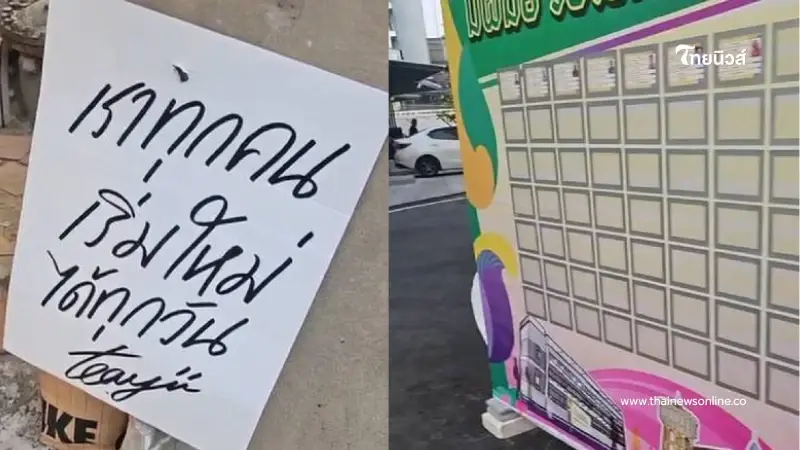 เราทุกคน
เริ่มใหม่
ได้ทุกวัน
teayii
KE
ไทยนิวส์
www.thainewsonline.co